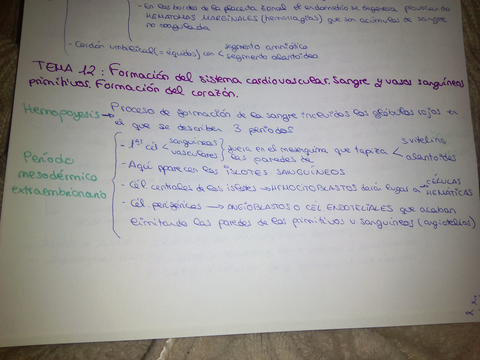 - En los bordes de la placenta zonal el endometrio se
HEMATOMAS MARGINALES (hemorragias) que son acúmulos de sangre
no coagulada
- Cordón umbilical (= équidos) con < segmento amniótico
segmento alantoideo
TEMA 12: Formación del sistema cardiovascular. Sangre y vasos sanguíneos
primitivos. Formación del corazón.
Hemopoyesis → Proceso de formación de la sangre incluidos los glóbulos rojos en
el que se describen 3 períodos
Período
mesodérmico
extraembrionario
- 1as cél < sanguíneas
vasculares fuera en el mesénquima que tapiza
las paredes de < s. vitelino
alantoides
- Aquí aparecen los ISLOTES SANGUÍNEOS
- Cél. centrales de los islotes → HEMOCITOBLASTOS dará lugar a → CÉLULAS
HEMÁTICAS
- Cél periféricas → ANGIOBLASTOS O CEL ENDOTELIALES que acaban
limitando las paredes de los primitivos v. sanguíneos (angiotelios)